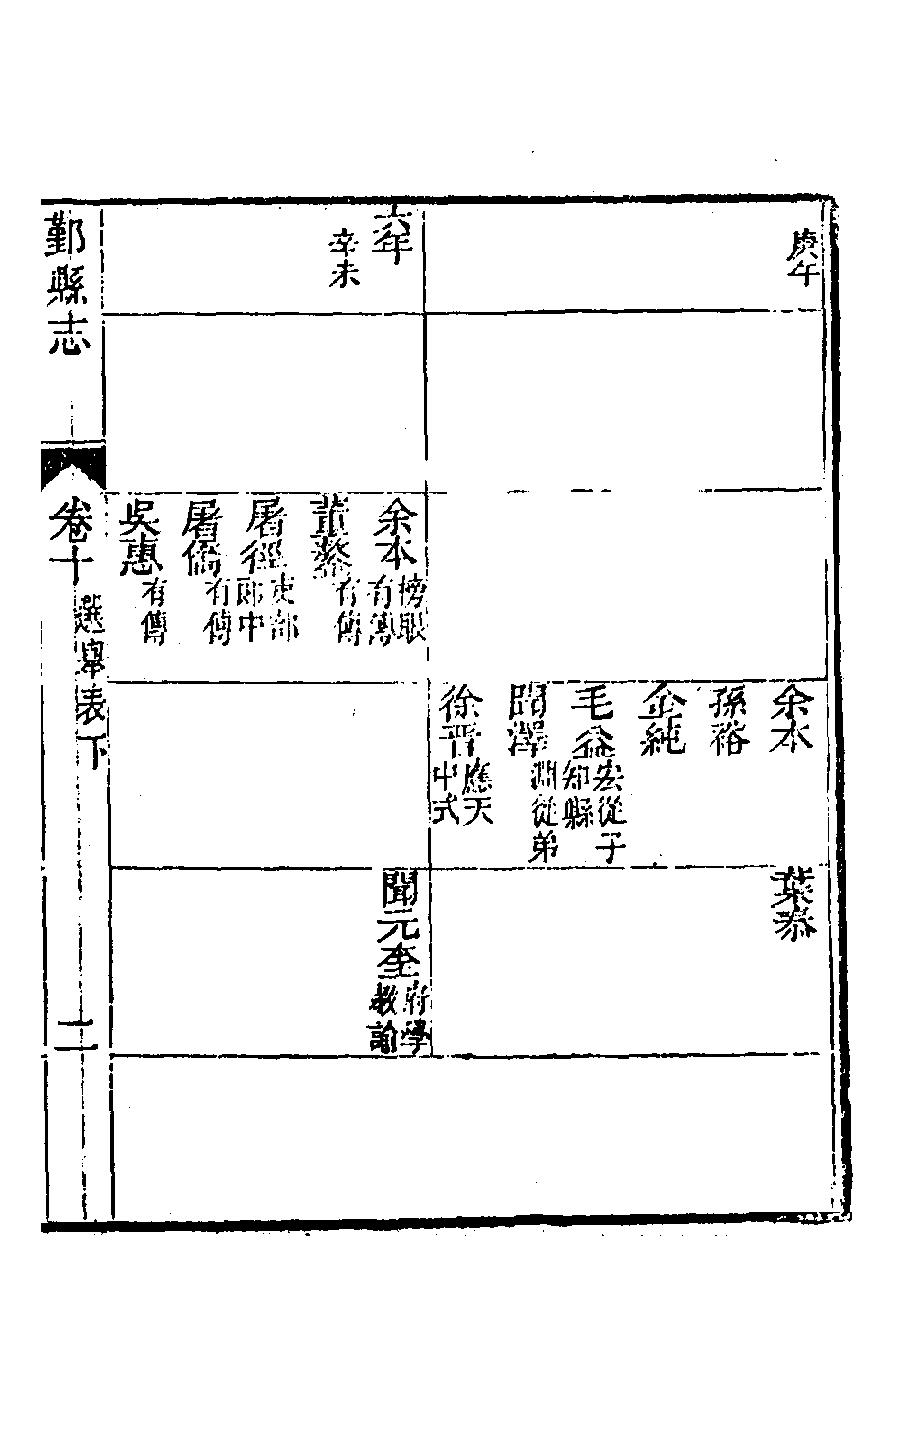 庚午
余本
孫裕
金純
毛益 宏從子知縣
聞澤 淵從弟
徐晋 應天中式
葉泰
六年
辛未
余本 榜眼有傳
董鏊 有傳
屠徑 吏部郎中
屠僑 有傳
吳惠 有傳
聞元奎 府學教諭
鄞縣志
卷十
選舉表下
二